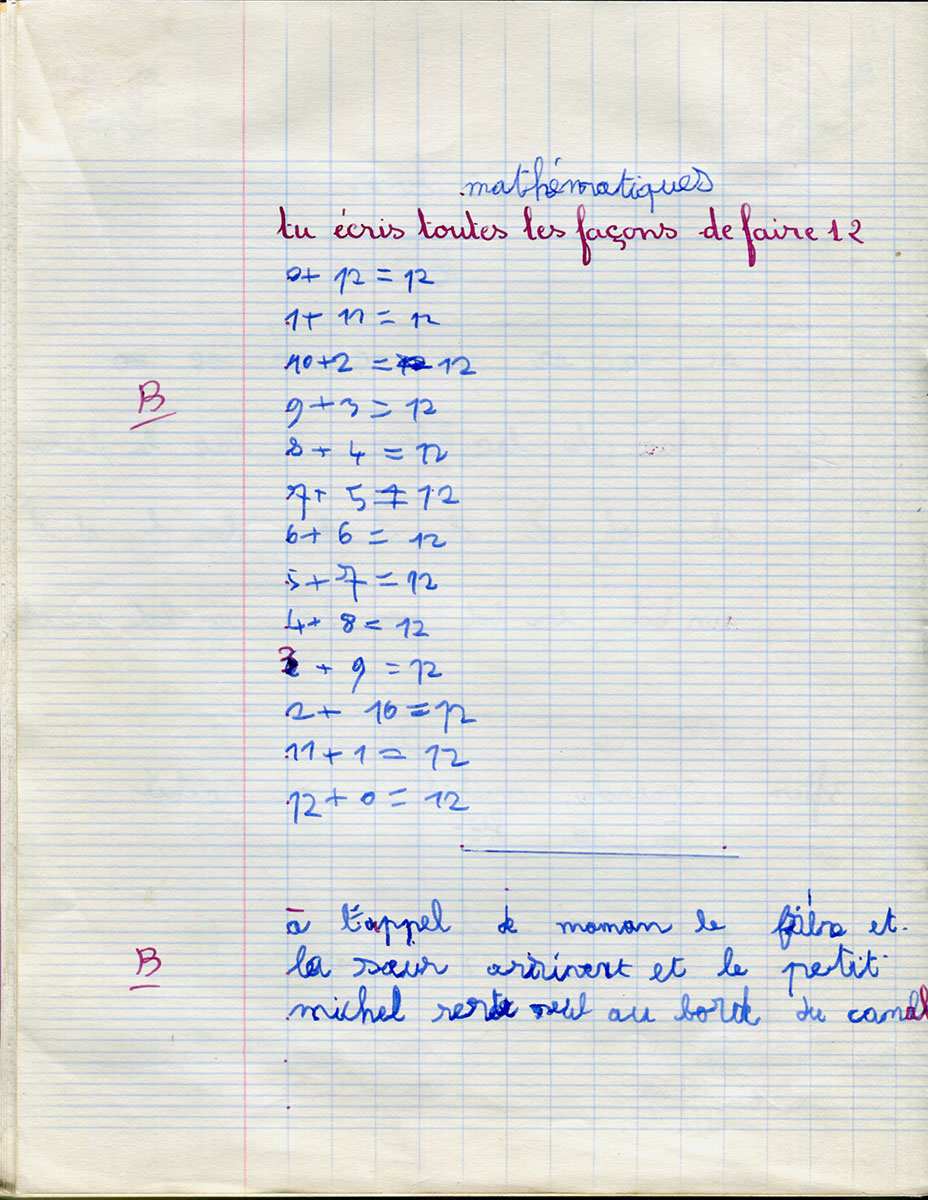 mathématiques
tu écris toutes les façons de faire 12
0+ 12 = 12
1+ 11 = 12
10+2 = 12
B
9+3= 12
8+ 4 = 12
7+ 5 = 12
6+ 6 = 12
5+7=12
4+ 8= 12
3 + 9 =12
2+ 10=12
11+1= 12
12+0= 12
à l'appel de maman le frère et
B
la sœur arrivent et le petit
michel reste seul au bord du canal